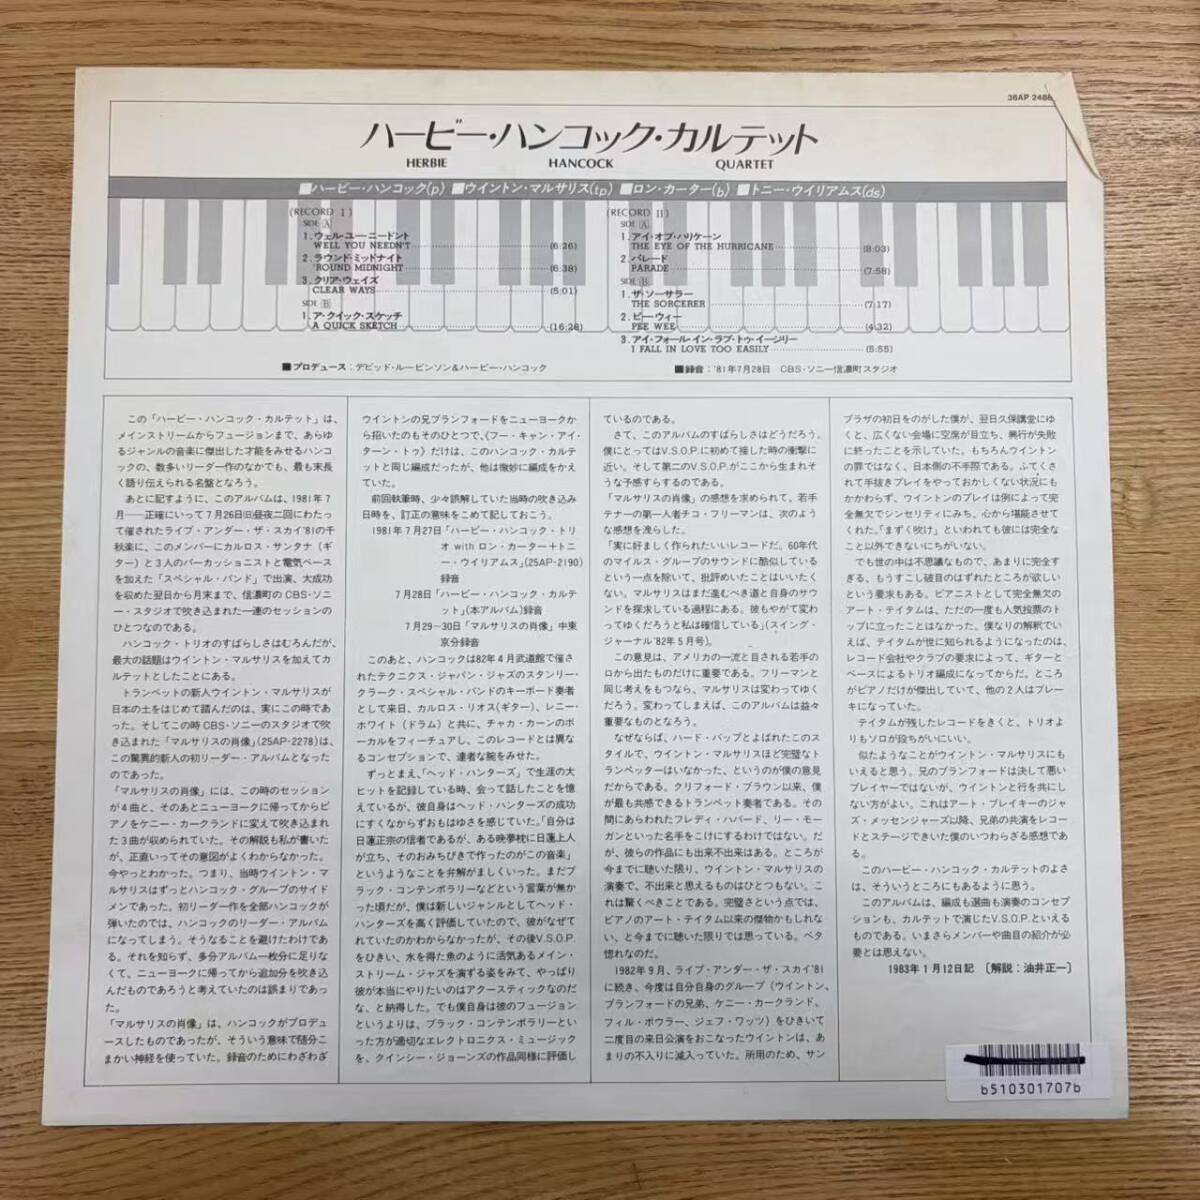 36AP 2486
ハービー・ハンコック・カルテット
HERBIE HANCOCK QUARTET
■ハービー・ハンコック(p) ■ウイントン・マルサリス(tp) ■ロン・カーター(b) ■トニー・ウイリアムス(ds)
(RECORD I)
SIDE A
1. ウェル・ユー・ニードント
WELL YOU NEEDN'T (6:26)
2. ラウンド・ミッドナイト
'ROUND MIDNIGHT (6:38)
3. クリア・ウェイズ
CLEAR WAYS (5:01)
SIDE B
1. ア・クイック・スケッチ
A QUICK SKETCH (16:28)
(RECORD II)
SIDE A
1. アイ・オブ・ハリケーン
THE EYE OF THE HURRICANE (8:03)
2. パレード
PARADE (7:58)
SIDE B
1. ザ・ソーサラー
THE SORCERER (7:17)
2. ピー・ウィー
PEE WEE (4:32)
3. アイ・フォール・イン・ラブ・トゥ・イージリー
I FALL IN LOVE TOO EASILY (5:55)
■プロデュース：デビッド・ルービンソン&ハービー・ハンコック
■録音：'81年7月28日 CBS・ソニー信濃町スタジオ
この「ハービー・ハンコック・カルテット」は、
メインストリームからフュージョンまで、あらゆ
るジャンルの音楽に傑出した才能をみせるハンコ
ックの、数多いリーダー作のなかでも、最も末長
く語り伝えられる名盤となろう。
あとに記すように、このアルバムは、1981年7
月──正確にいって7月26日(日)昼夜二回にわたっ
て催されたライブ・アンダー・ザ・スカイ'81の千
秋楽に、このメンバーにカルロス・サンタナ（ギ
ター）と3人のパーカッショニストと電気ベース
を加えた「スペシャル・バンド」で出演、大成功
を収めた翌日から月末まで、信濃町のCBS・ソニ
ー・スタジオで吹き込まれた一連のセッションの
ひとつなのである。
ハンコック・トリオのすばらしさはむろんだが、
最大の話題はウイントン・マルサリスを加えてカ
ルテットとしたことにある。
トランペットの新人ウイントン・マルサリスが
日本の土をはじめて踏んだのは、実にこの時であ
った。そしてこの時CBS・ソニーのスタジオで吹
き込まれた「マルサリスの肖像」(25AP-2278)は、
この驚異的新人の初リーダー・アルバムとなった
のであった。
「マルサリスの肖像」には、この時のセッション
が4曲と、そのあとニューヨークに帰ってからピ
アノをケニー・カークランドに変えて吹き込まれ
た3曲が収められていた。その解説も私が書いた
が、正直いってその意図がよくわからなかった。
今やっとわかった。つまり、当時ウイントン・マ
ルサリスはずっとハンコック・グループのサイド
メンであった。初リーダー作を全部ハンコックが
弾いたのでは、ハンコックのリーダー・アルバム
になってしまう。そうなることを避けたわけであ
る。それを知らず、多分アルバム一枚分に足りな
くて、ニューヨークに帰ってから追加分を吹き込
んだものであろうと考えていたのは誤まりであっ
た。
「マルサリスの肖像」は、ハンコックがプロデュ
ースしたものであったが、そういう意味で随分こ
まかい神経を使っていた。録音のためにわざわざ
ウイントンの兄ブランフォードをニューヨークか
ら招いたのもそのひとつで、《フー・キャン・アイ・
ターン・トゥ》だけは、このハンコック・カルテッ
トと同じ編成だったが、他は微妙に編成をかえ
ていたのである。
前回執筆時、少々誤解していた当時の吹き込み
日時を、訂正の意味をこめて記しておこう。
1981年7月27日「ハービー・ハンコック・トリ
オ with ロン・カーター+トニ
ー・ウイリアムス」(25AP-2190)
録音
7月28日「ハービー・ハンコック・カルテ
ット」(本アルバム)録音
7月29～30日「マルサリスの肖像」中東
京分録音
このあと、ハンコックは82年4月武道館で催さ
れたテクニクス・ジャパン・ジャズのスタンリー・
クラーク・スペシャル・バンドのキーボード奏者
として来日、カルロス・リオス(ギター)、レニー・
ホワイト（ドラム）と共に、チャカ・カーンのボ
ーカルをフィーチュアし、このレコードとは異な
るコンセプションで、達者な腕をみせた。
ずっとまえ、「ヘッド・ハンターズ」で生涯の大
ヒットを記録している時、会って話したことを憶
えているが、彼自身はヘッド・ハンターズの成功
にすくなからずおもはゆさを感じていた。「自分は
日蓮正宗の信者であるが、ある晩夢枕に日蓮上人
が立ち、そのおみちびきで作ったのがこの音楽」
というようなことを弁解がましくいった。まだブ
ラック・コンテンポラリーなどという言葉が無か
った頃だが、僕は新しいジャンルとしてヘッド・
ハンターズを高く評価していたので、彼がなぜて
れていたのかわからなかったが、その後V.S.O.P.
をひきい、水を得た魚のように活気あるメイン・
ストリーム・ジャズを演ずる姿をみて、やっぱり
彼が本当にやりたいのはアクースティックなのだ
な、と納得した。でも僕自身は彼のフュージョン
というよりは、ブラック・コンテンポラリーとい
った方が適切なエレクトロニクス・ミュージック
を、クインシー・ジョーンズの作品同様に評価し
ているのである。
さて、このアルバムのすばらしさはどうだろう。
僕にとってはV.S.O.P.に初めて接した時の衝撃に
近い。そして第二のV.S.O.P.がここから生まれそ
うな予感すらするのである。
「マルサリスの肖像」の感想を求められて、若手
テナーの第一人者チコ・フリーマンは、次のよう
な感想を洩らした。
「実に好ましく作られたいいレコードだ。60年代
のマイルス・グループのサウンドに酷似している
という一点を除いて、批評めいたことはいいたく
ない。マルサリスはまだ進むべき道と自身のサウ
ンドを探求している過程にある。彼もやがて変わ
ってゆくだろうと私は確信している」(スイング・
ジャーナル'82年5月号)。
この意見は、アメリカの一流と目される若手の
口から出たものだけに重要である。フリーマンと
同じ考えをもつなら、マルサリスは変わってゆく
だろう。変わってしまえば、このアルバムは益々
重要なものとなろう。
なぜならば、ハード・バップとよばれたこのス
タイルで、ウイントン・マルサリスほど完璧なト
ランペッターはいなかった、というのが僕の意見
だからである。クリフォード・ブラウン以来、僕
が最も共感できるトランペット奏者である。その
間にあらわれたフレディ・ハバード、リー・モー
ガンといった名手をこけにするわけではない。だ
が、彼らの作品にも出来不出来はある。ところが
今までに聴いた限り、ウイントン・マルサリスの
演奏で、不出来と思えるものはひとつもない。こ
れは驚くべきことである。完璧さという点では、
ピアノのアート・テイタム以来の傑物かもしれな
い、と今までに聴いた限りでは思っている。ベタ
惚れなのだ。
1982年9月、ライブ・アンダー・ザ・スカイ'81
に続き、今度は自分自身のグループ（ウイントン、
ブランフォードの兄弟、ケニー・カークランド、
フィル・ボウラー、ジェフ・ワッツ）をひきいて
二度目の来日公演をおこなったウイントンは、あ
まりの不入りに滅入っていた。所用のため、サン
プラザの初日をのがした僕が、翌日久保講堂にゆ
くと、広くない会場に空席が目立ち、興行が失敗
に終ったことを示していた。もちろんウイントン
の罪ではなく、日本側の不手際である。ふてくさ
れて手抜きプレイをやっておかしくない状況にも
かかわらず、ウイントンのプレイは例によって完
全無欠でシンセリティにみち、心から堪能させて
くれた。「まずく吹け」といわれても彼には完全な
こと以外できないにちがいない。
でも世の中は不思議なもので、あまりに完全す
ぎる、もうすこし破目のはずれたところが欲しい
という要求もある。ピアニストとして完全無欠の
アート・テイタムは、ただの一度も人気投票のト
ップに立ったことはなかった。僕なりの解釈でい
えば、テイタムが世に知られるようになったのは、
レコード会社やクラブの要求によって、ギターと
ベースによるトリオ編成になってからだ。ところ
がピアノだけが傑出していて、他の2人はブレー
キになっていた。
テイタムが残したレコードをきくと、トリオよ
りもソロが段ちがいにいい。
似たようなことがウイントン・マルサリスにも
いえると思う。兄のブランフォードは決して悪い
プレイヤーではないが、ウイントンと行を共にし
ない方がよい。これはアート・ブレイキーのジャ
ズ・メッセンジャーズ以降、兄弟の共演をレコー
ドとステージできいた僕のいつわらざる感想であ
る。
このハービー・ハンコック・カルテットのよさ
は、そういうところにもあるように思う。
このアルバムは、編成も選曲も演奏のコンセプ
ションも、カルテットで演じたV.S.O.P.といえる
ものである。いまさらメンバーや曲目の紹介が必
要とは思えない。
1983年1月12日記 〔解説：油井正一〕
b510301707b